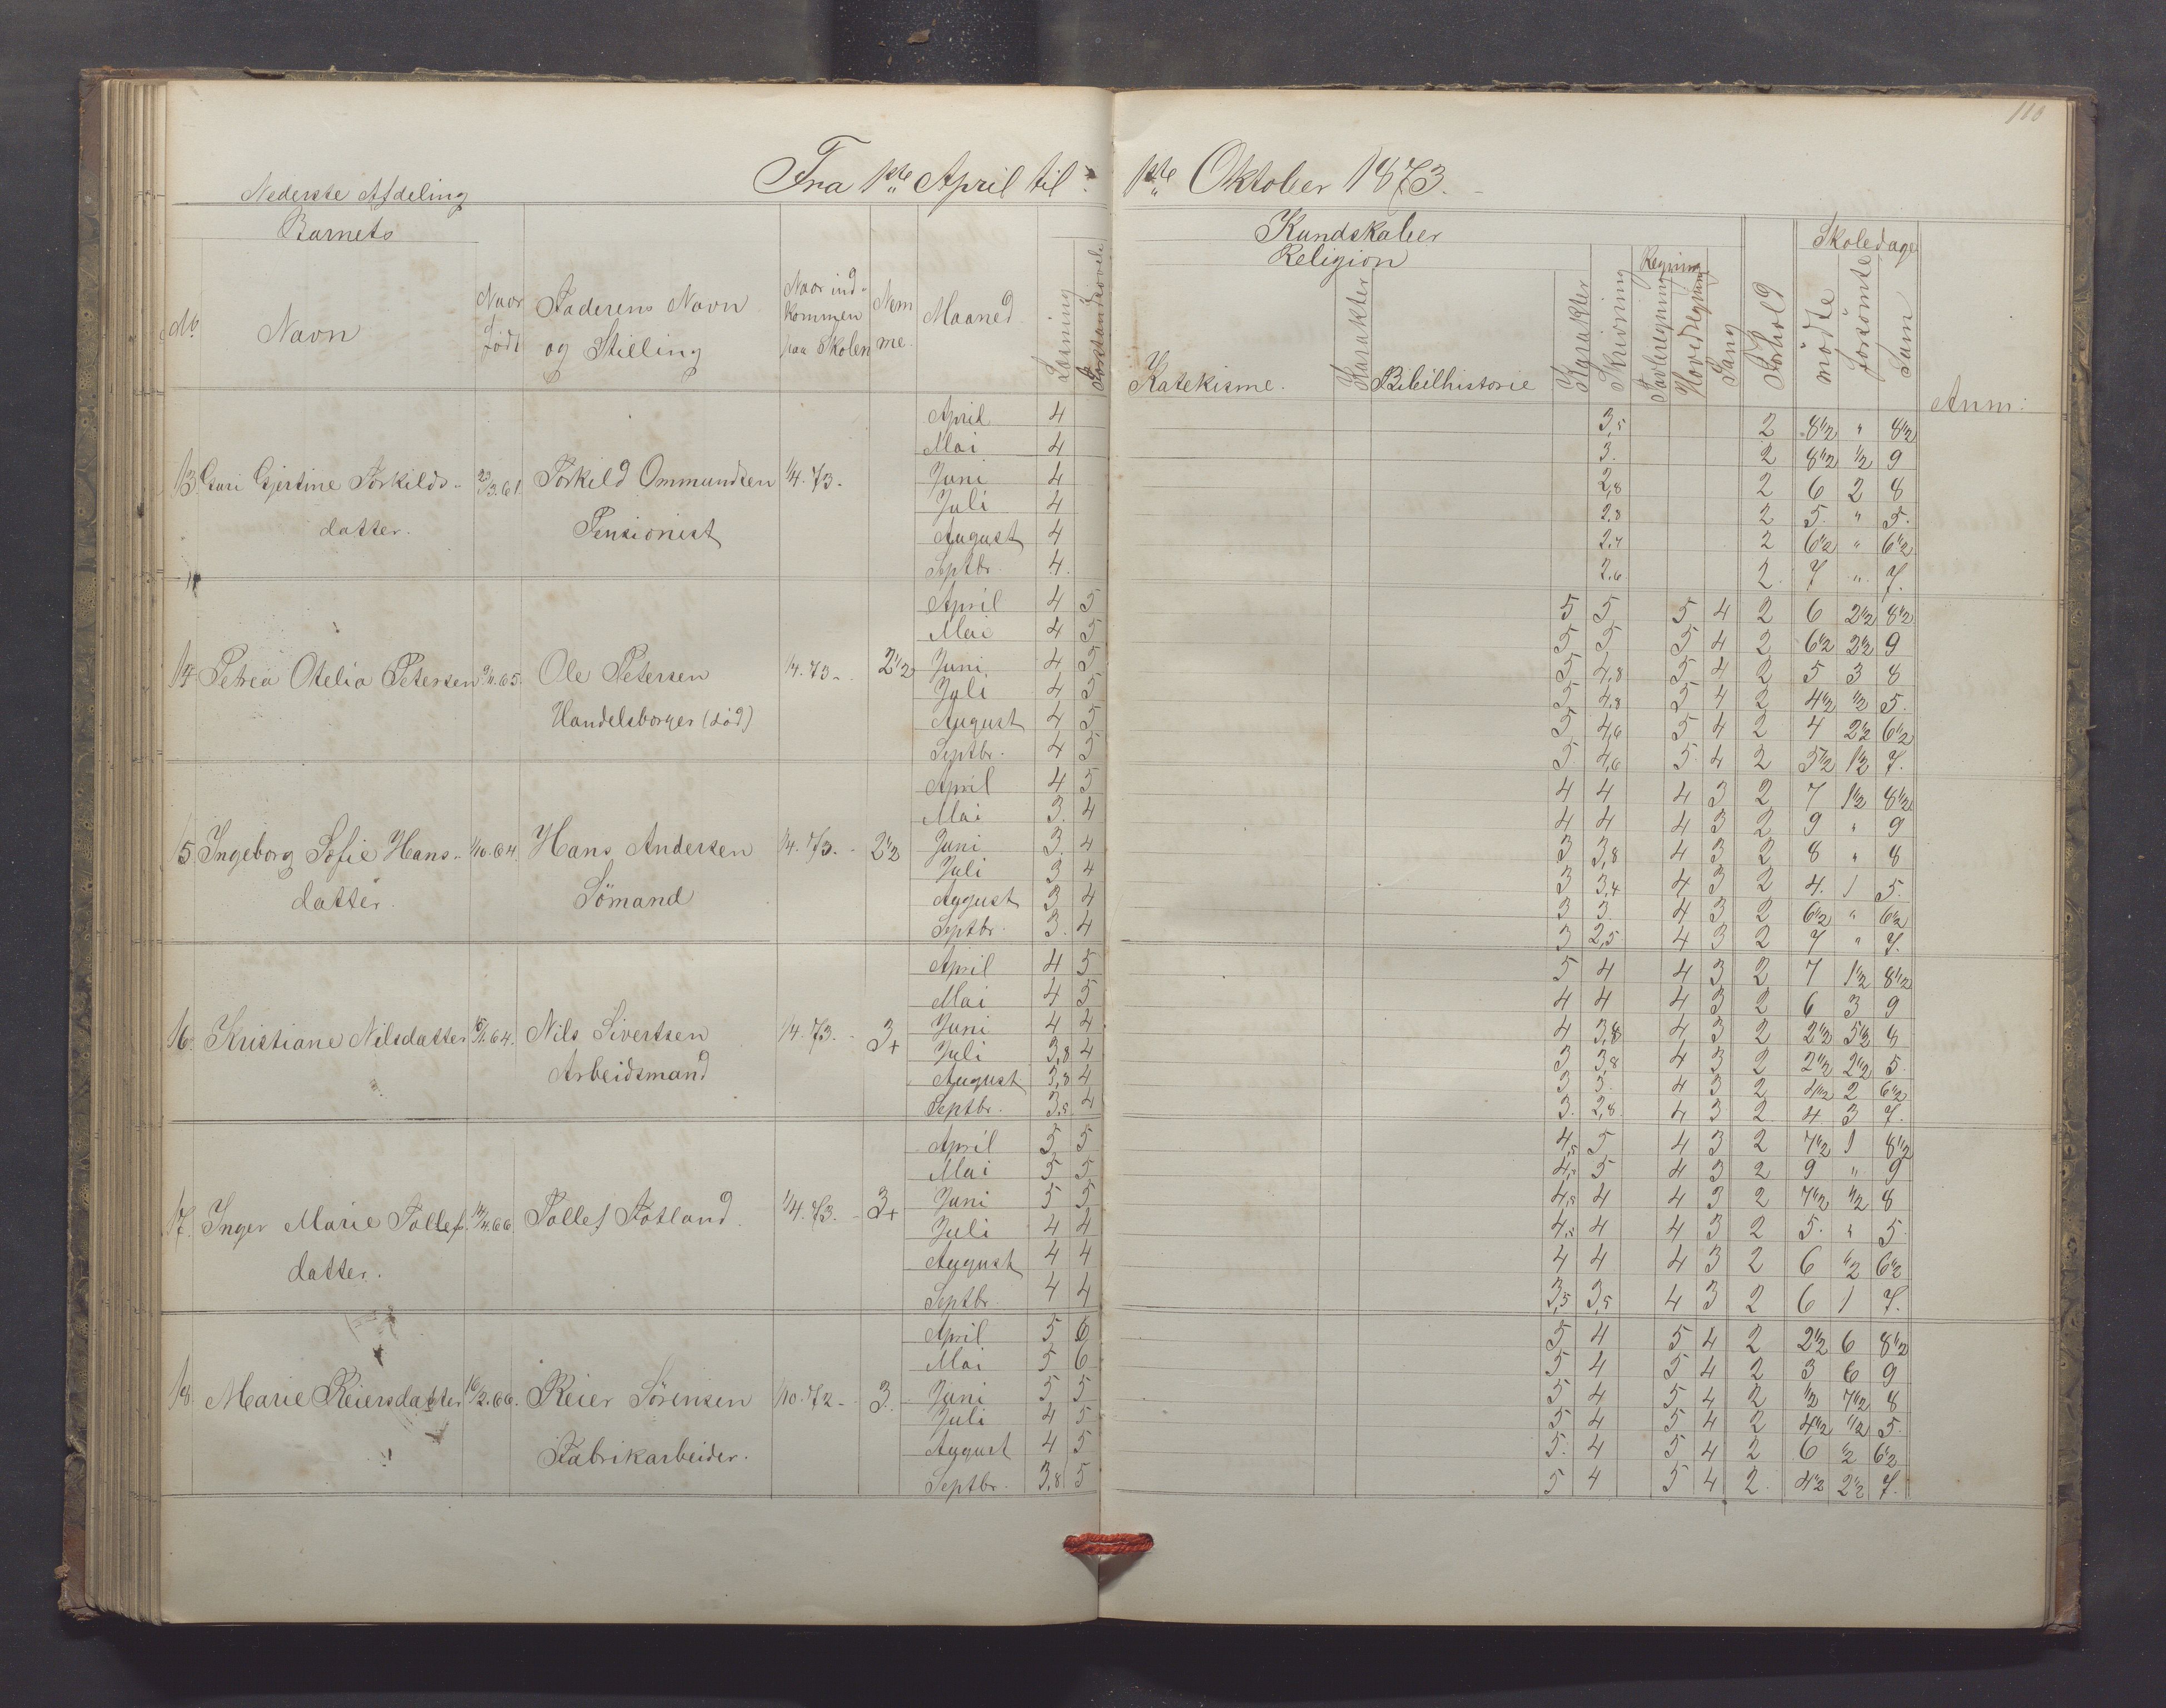 110
Fra 1ste April til 1ste Oktober 1873.
Nederste Afdeling
Barnets
Kundskaber
Religion
Regning
Skoledage
No. Navn Naar født Faderens Navn og Stilling Naar ind- kommen paa Skolen Nem me. Maaned. Læsning Forstandsøvele Katekisme. Karakter Bibelhistorie Karakter Skrivning Tavleregning Hovedregning Sang Forhold mödte forsömte Sum Anm:
April 4 3,5 2 8 1/2 " 8 1/2
Mai 4 3. 2 8 1/2 1/2 9
13. Guri Gjertine Torkilds- 1/3.61. Torkild Ommundsen 1/4.73. Juni 4 2,8 2 6 2 8
Juli 4 2,8 2 5. " 5.
datter. Pensionist August 4 2,7 2 6 1/2 " 6 1/2
Septbr. 4. 2,6 2. 7 " 7.
April 4 5 5 5 5 4 2 6 2 1/2 8 1/2
Mai 4 5 5 5 5 4 2 6 1/2 2 1/2 9
14 Petrea Otelia Petersen 9/11.65. Ole Petersen 1/4.73. 2 1/2 Juni 4 5 5 4,8 5 4 2 5 3 8
Juli 4 5 5 4,8 5 4 2 4 1/2 1/2 5.
Handelsborger (död) August 4 5 5 4,6 5 4 2 4 2 1/2 6 1/2
Septbr. 4 5 5 4,6 5 4 2 5 1/2 1 1/2 7.
April 4 5 4 4 4 3 2 7 1 1/2 8 1/2
Mai 3. 4 4 4 4 3 2 9 " 9
15. Ingeborg Sofie Hans- 1/10.64. Hans Andersen 1/4.73. 2 1/2 Juni 3 4 3 3,8 4 3 2 8 " 8
Juli 3 4 3 3,4 4 3 2 4. 1 5.
datter. Sömand August 3 4 3 3. 4 3 2 6 1/2 " 6 1/2
Septbr. 3. 4 3 2,5 4 3 2 7 " 7.
April 4 5 5 4 4 3 2 7 1 1/2 8 1/2
Mai 4 5 4 4 4 3 2 6 3 9
16. Kristiane Nilsdatter 64. Nils Sivertsen 1/4.73. 3+ Juni 4 4 4 3,8 4 3 2 2 1/2 5 1/2 8
Juli 3,8 4 3 3,8 4 3 2 2 1/2 2 1/2 5.
Arbeidsmand August 3,8 4 3 3. 4 3 2 4 1/2 2 6 1/2
Septbr. 3,5 4 3. 2,8 4 3 2 4 3 7.
April 5 5 4,5 5 4 3 2 7 1/2 1 8 1/2
Mai 5 5 4,5 5 4 3 2 9 " 9
17. Inger Marie Tollefs- 14/4.66. Tollef Fotland. 1/4.73. 3+ Juni 5 5 4,5 4 4 3 2 7 1/2 1/2 8
Juli 4 4 4,5 4 4 3 2 5. " 5.
datter. August 4 4 4 4 4 3 2 6 1/2 6 1/2
Septbr. 4 4 3,5 3,5 4 3 2 6 1 7.
April 5 6 5 4 5 4 2 2 1/2 6 8 1/2
Mai 5 6 5 4 5 4 2 3 6 9
18. Marie Reiersdatter 16/2.66. Reier Sörensen 1/10.72. 3. Juni 5 5 5 4 5 4 2 1/2 7 1/2 8
Juli 4 5 5 4 5 4 2 4 1/2 1/2 5.
Fabrikarbeider. August 4 5 5. 4 5 4 2 6 1/2 6 1/2
Septbr. 3,8 5 5 4 5 4 2. 4 1/2 2 1/2 7.